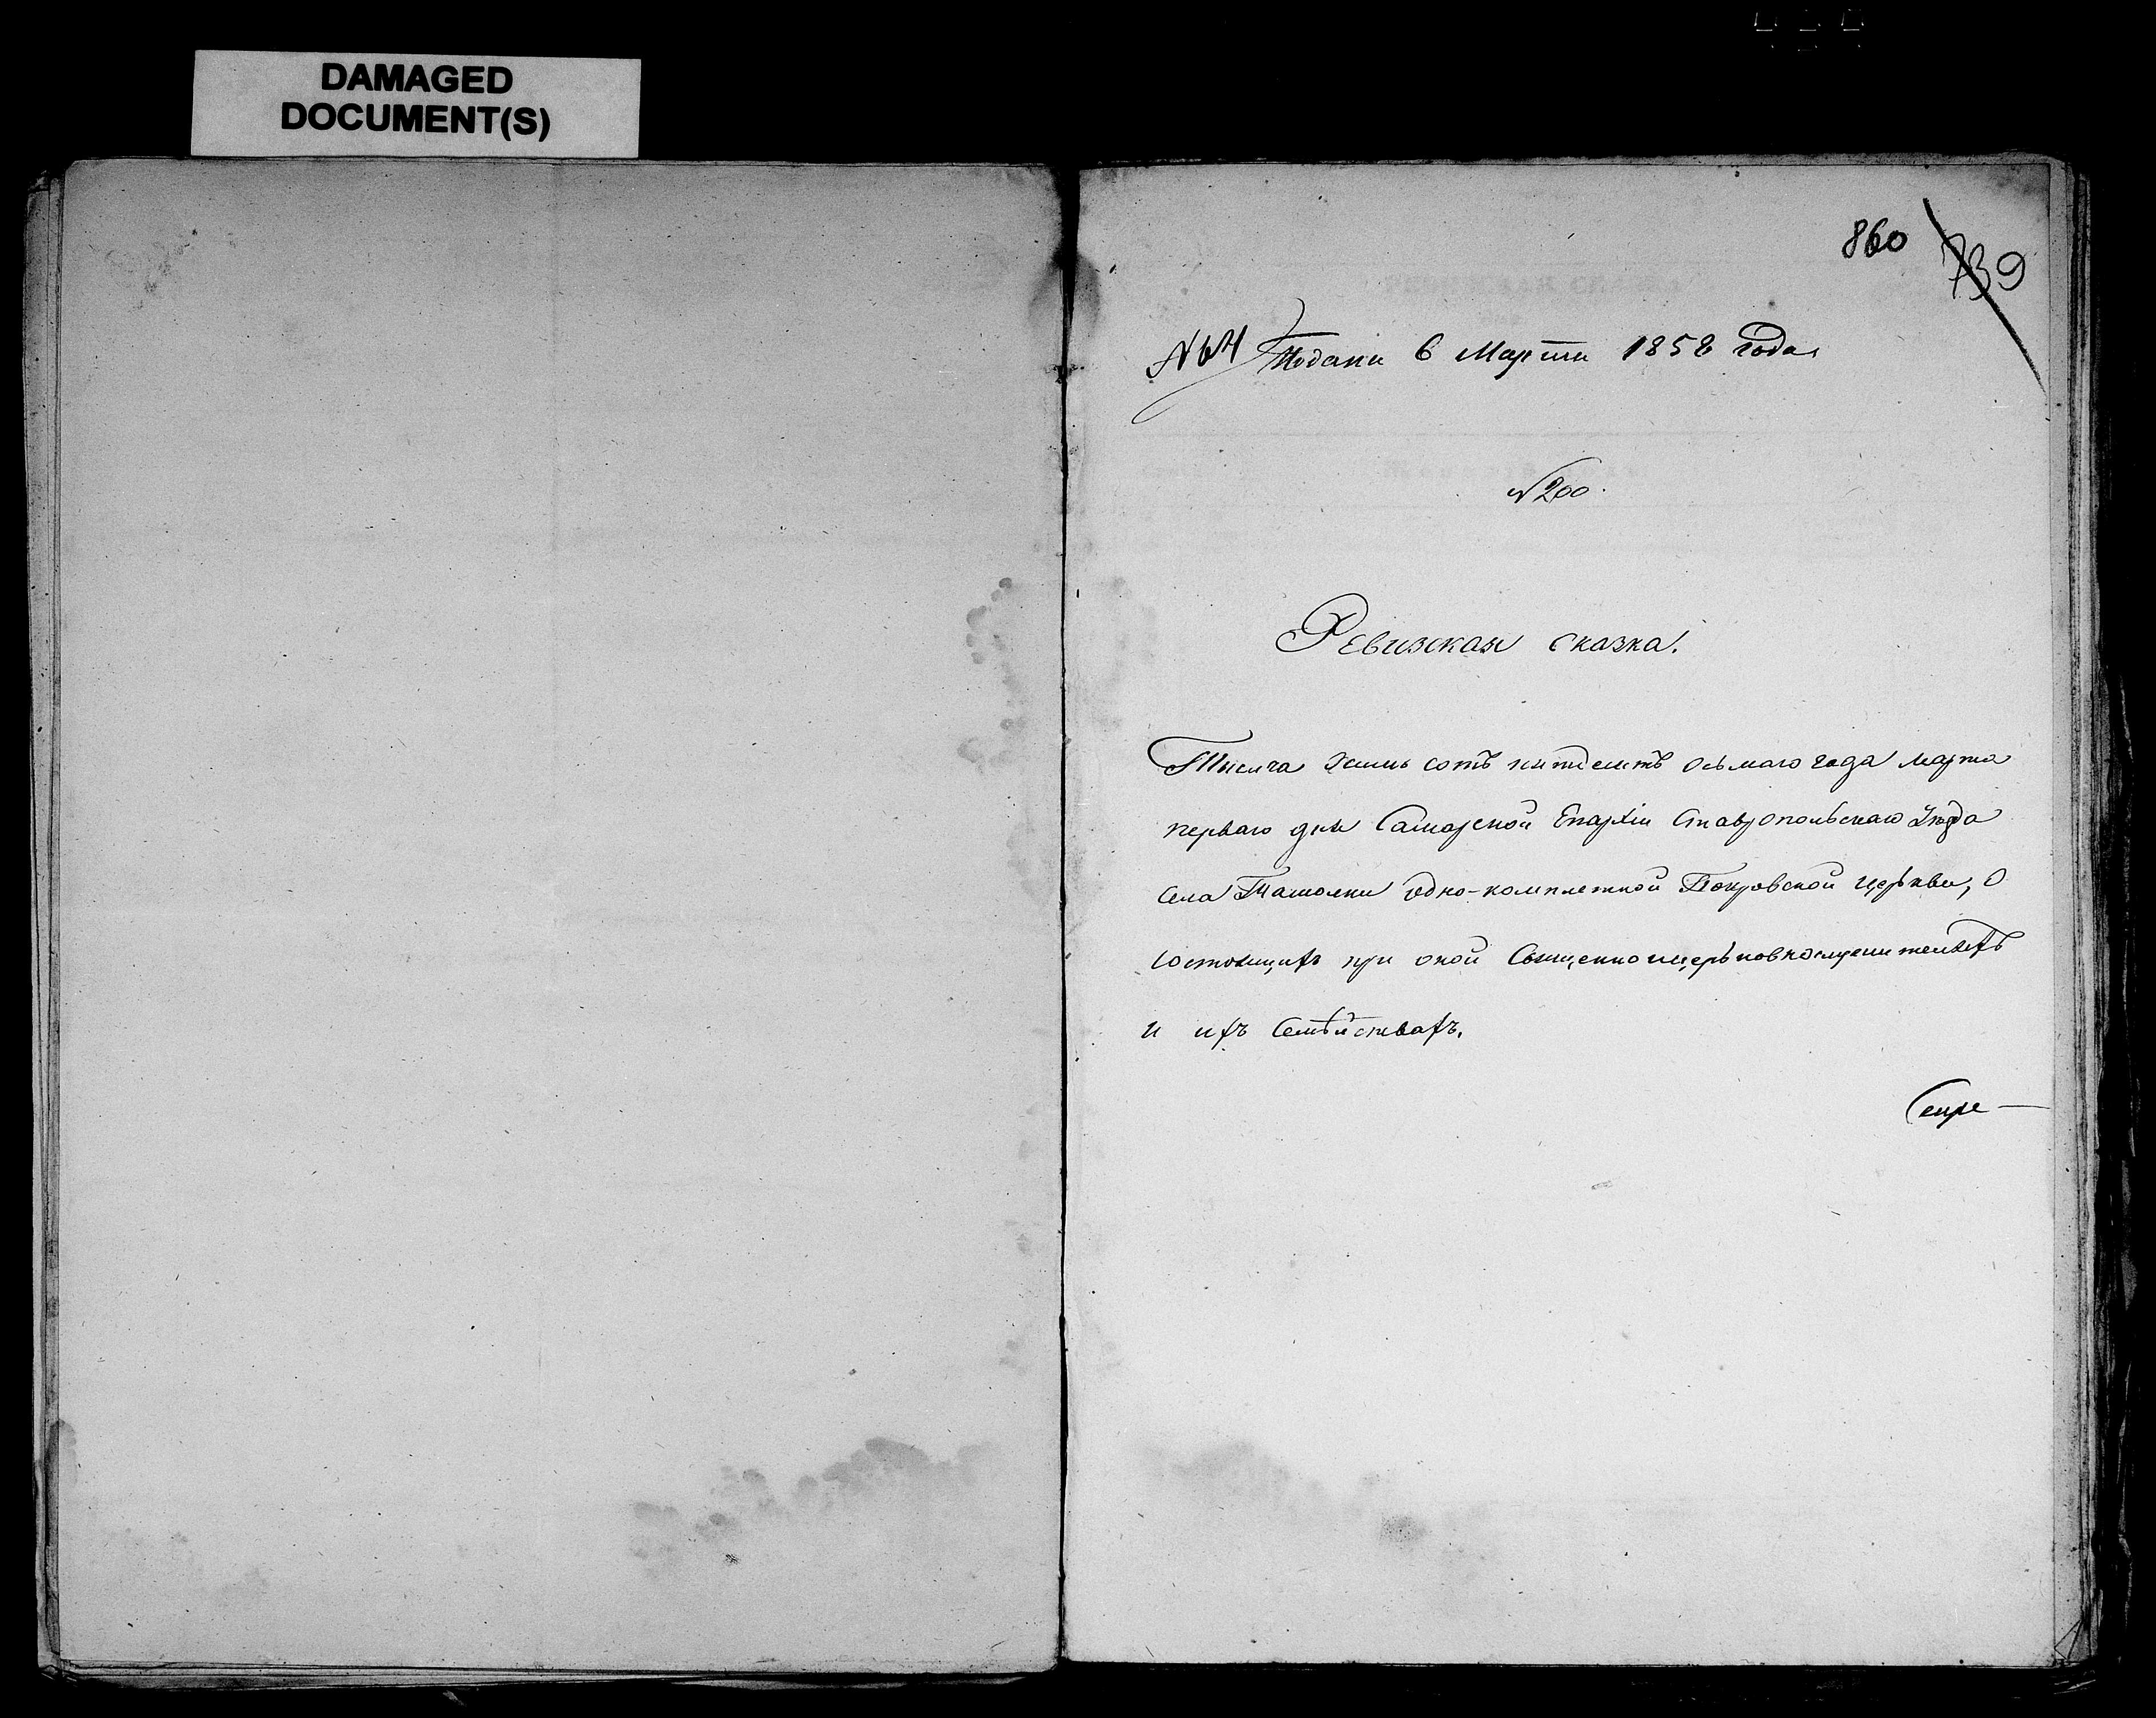 DAMAGED
DOCUMENT(S)
860
739
№64 Подана 6 Марта 1858 года
№200.
Ревизская сказка.
Тысяча восемь сотъ пятдесятъ осьмаго года марта
перваго дня Самарской Епархіи Ставропольскаго Уѣзда
Села Ташолки одно-комплетной Покровской церькви, о
состоящихъ при оной Священноцерьковнослужителяхъ
и ихъ Семѣйствахъ.